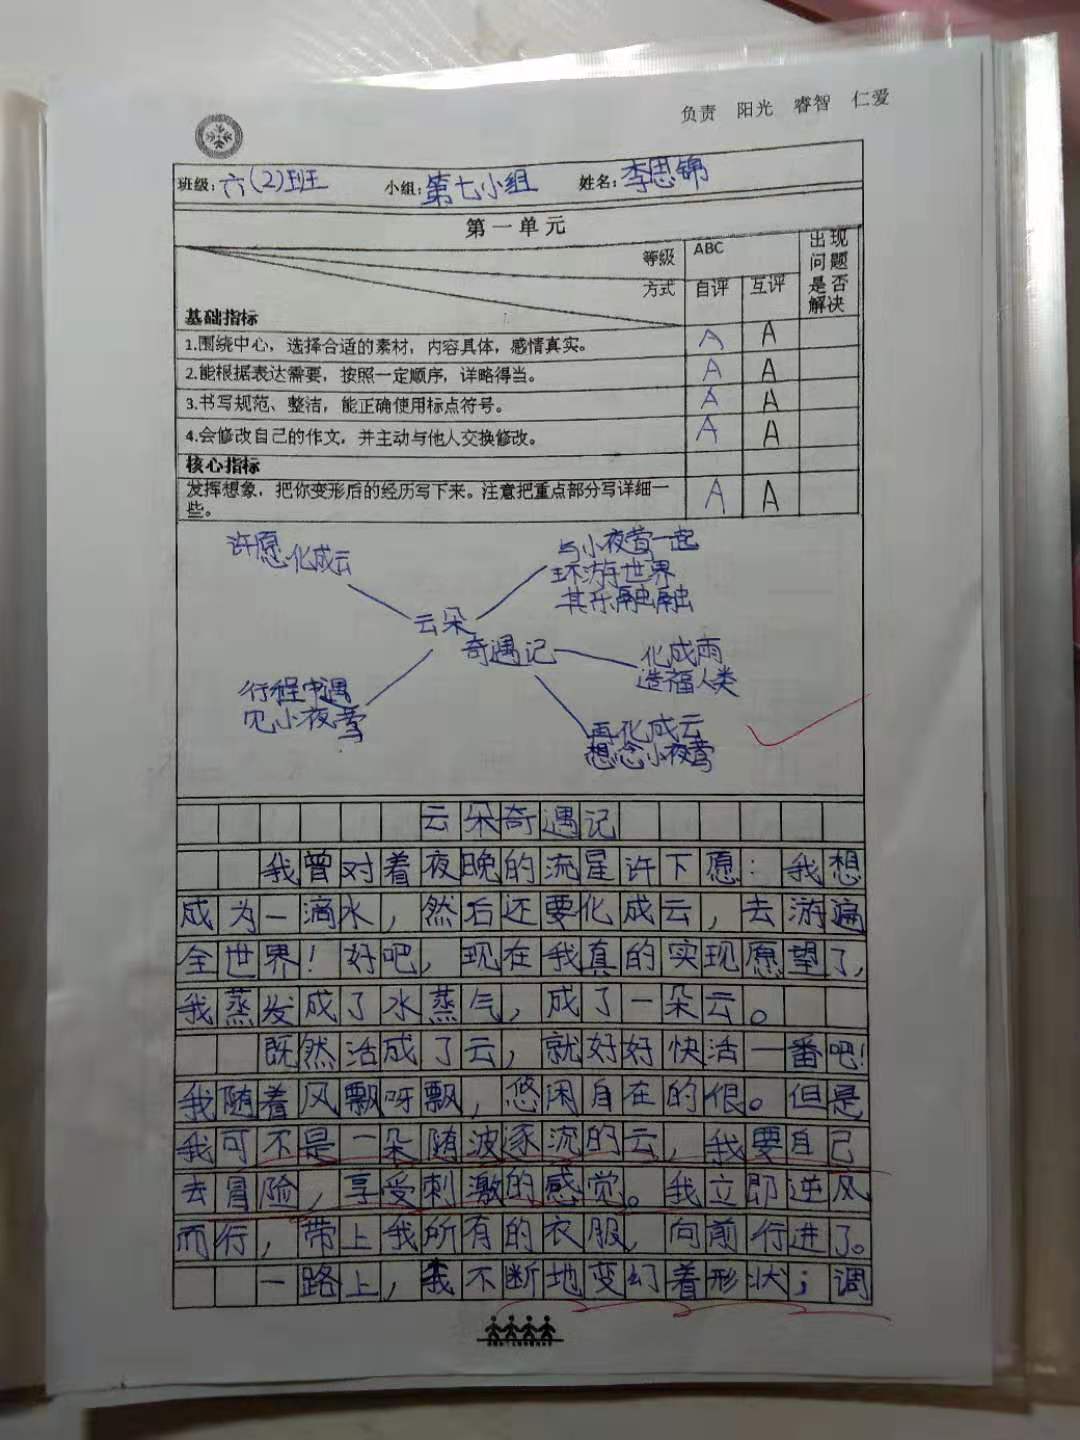 负责 阳光 睿智 仁爱
班级：六(2)班 小组：第七小组 姓名：李思锦
第一单元
等级 ABC 出现问题是否解决
方式 自评 互评
基础指标
1.围绕中心，选择合适的素材，内容具体，感情真实。 A A
2.能根据表达需要，按照一定顺序，详略得当。 A A
3.书写规范、整洁，能正确使用标点符号。 A A
4.会修改自己的作文，并主动与他人交换修改。 A A
核心指标
发挥想象，把你变形后的经历写下来。注意把重点部分写详细一 A A
些。
许愿化成云
与小夜莺一起
环游世界
其乐融融
云朵
奇遇记
化成雨
造福人类
行程中遇
见小夜莺
再化成云
想念小夜莺
云朵奇遇记
我曾对着夜晚的流星许下愿：我想
成为一滴水，然后还要化成云，去游遍
全世界！好吧，现在我真的实现愿望了，
我蒸发成了水蒸气，成了一朵云。
既然活成了云，就好好快活一番吧！
我随着风飘呀飘，悠闲自在的很。但是
我可不是一朵随波逐流的云，我要自己
去冒险，享受刺激的感觉。我立即逆风
而行，带上我所有的衣服，向前行进了。
一路上，我不断地变幻着形状；调